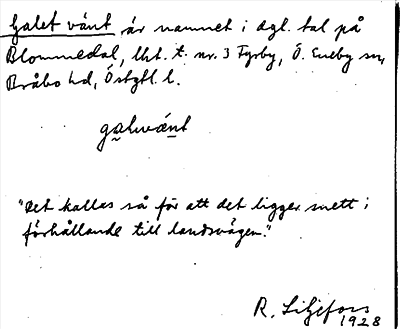 Galet vänt är namnet i dgl. tal på
Blommedal, lht. t. nr. 3 Fyrby, Ö. Eneby sn,
Bråbo hd, Östgtl. l.
galəvänt
"Det kallas så för att det ligger snett i
förhållande till landsvägen."
R. Liljefors
1928